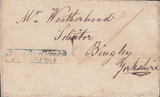 Mr Weatherhead
Solicitor
Bingley
Yorkshire